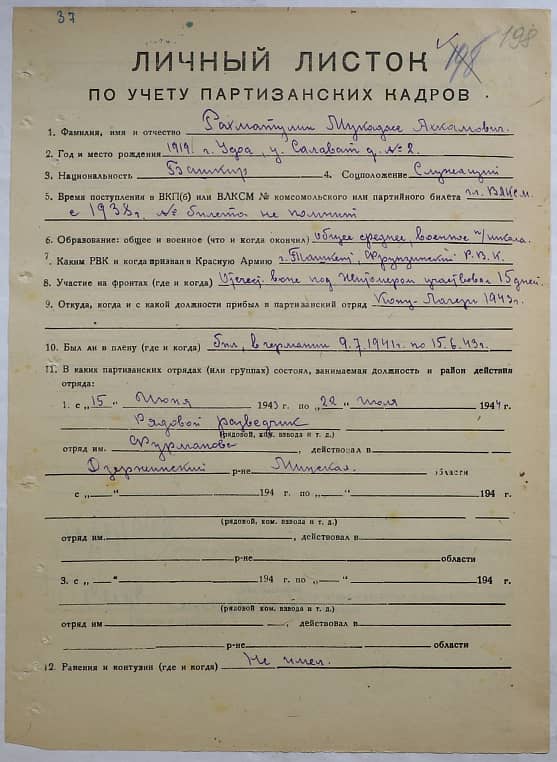 37
198
198
ЛИЧНЫЙ ЛИСТОК
ПО УЧЕТУ ПАРТИЗАНСКИХ КАДРОВ
1. Фамилия, имя и отчество Рахматулин Мукадас Ахкамович.
2. Год и место рождения 1919 г. г Уфа, у. Салават д. № 2.
3. Национальность Башкир 4. Соцположение Служащий
5. Время поступления в ВКП(б) или ВЛКСМ № комсомольского или партийного билета чл. ВЛКСМ.
с 1938г. № билета не помнит
6. Образование: общее и военное (что и когда окончил) общее среднее, военное п/школа.
7. Каким РВК и когда призван в Красную Армию г. Ташкент, Фрунзинский Р.В.К.
8. Участие на фронтах (где и когда) Отечест. война под Житомером участвовал 15 дней.
9. Откуда, когда и с какой должности прибыл в партизанский отряд Конц-Лагерь 1943г.
10. Был ли в плену (где и когда) был, в германии 9.7.1941г. по 15.6.43г.
11. В каких партизанских отрядах (или группах) состоял, занимаемая должность и район действия
отряда:
1. с „15" Июня 1943 г. по „22" июля 1944 г.
Рядовой разведчик
(рядовой, ком. взвода и т. д.)
отряд им. Фурманова, действовал в
Дзержинский р-не Минская. области
с „ " 194 г. по „ " 194 г.
(рядовой, ком. взвода и т. д.)
отряд им. , действовал в
р-не области
3. с „ " 194 г. по „ " 194 г.
(рядовой, ком. взвода и т. д.)
отряд им , действовал в
р-не области
12. Ранения и контузии (где и когда) Не имел.